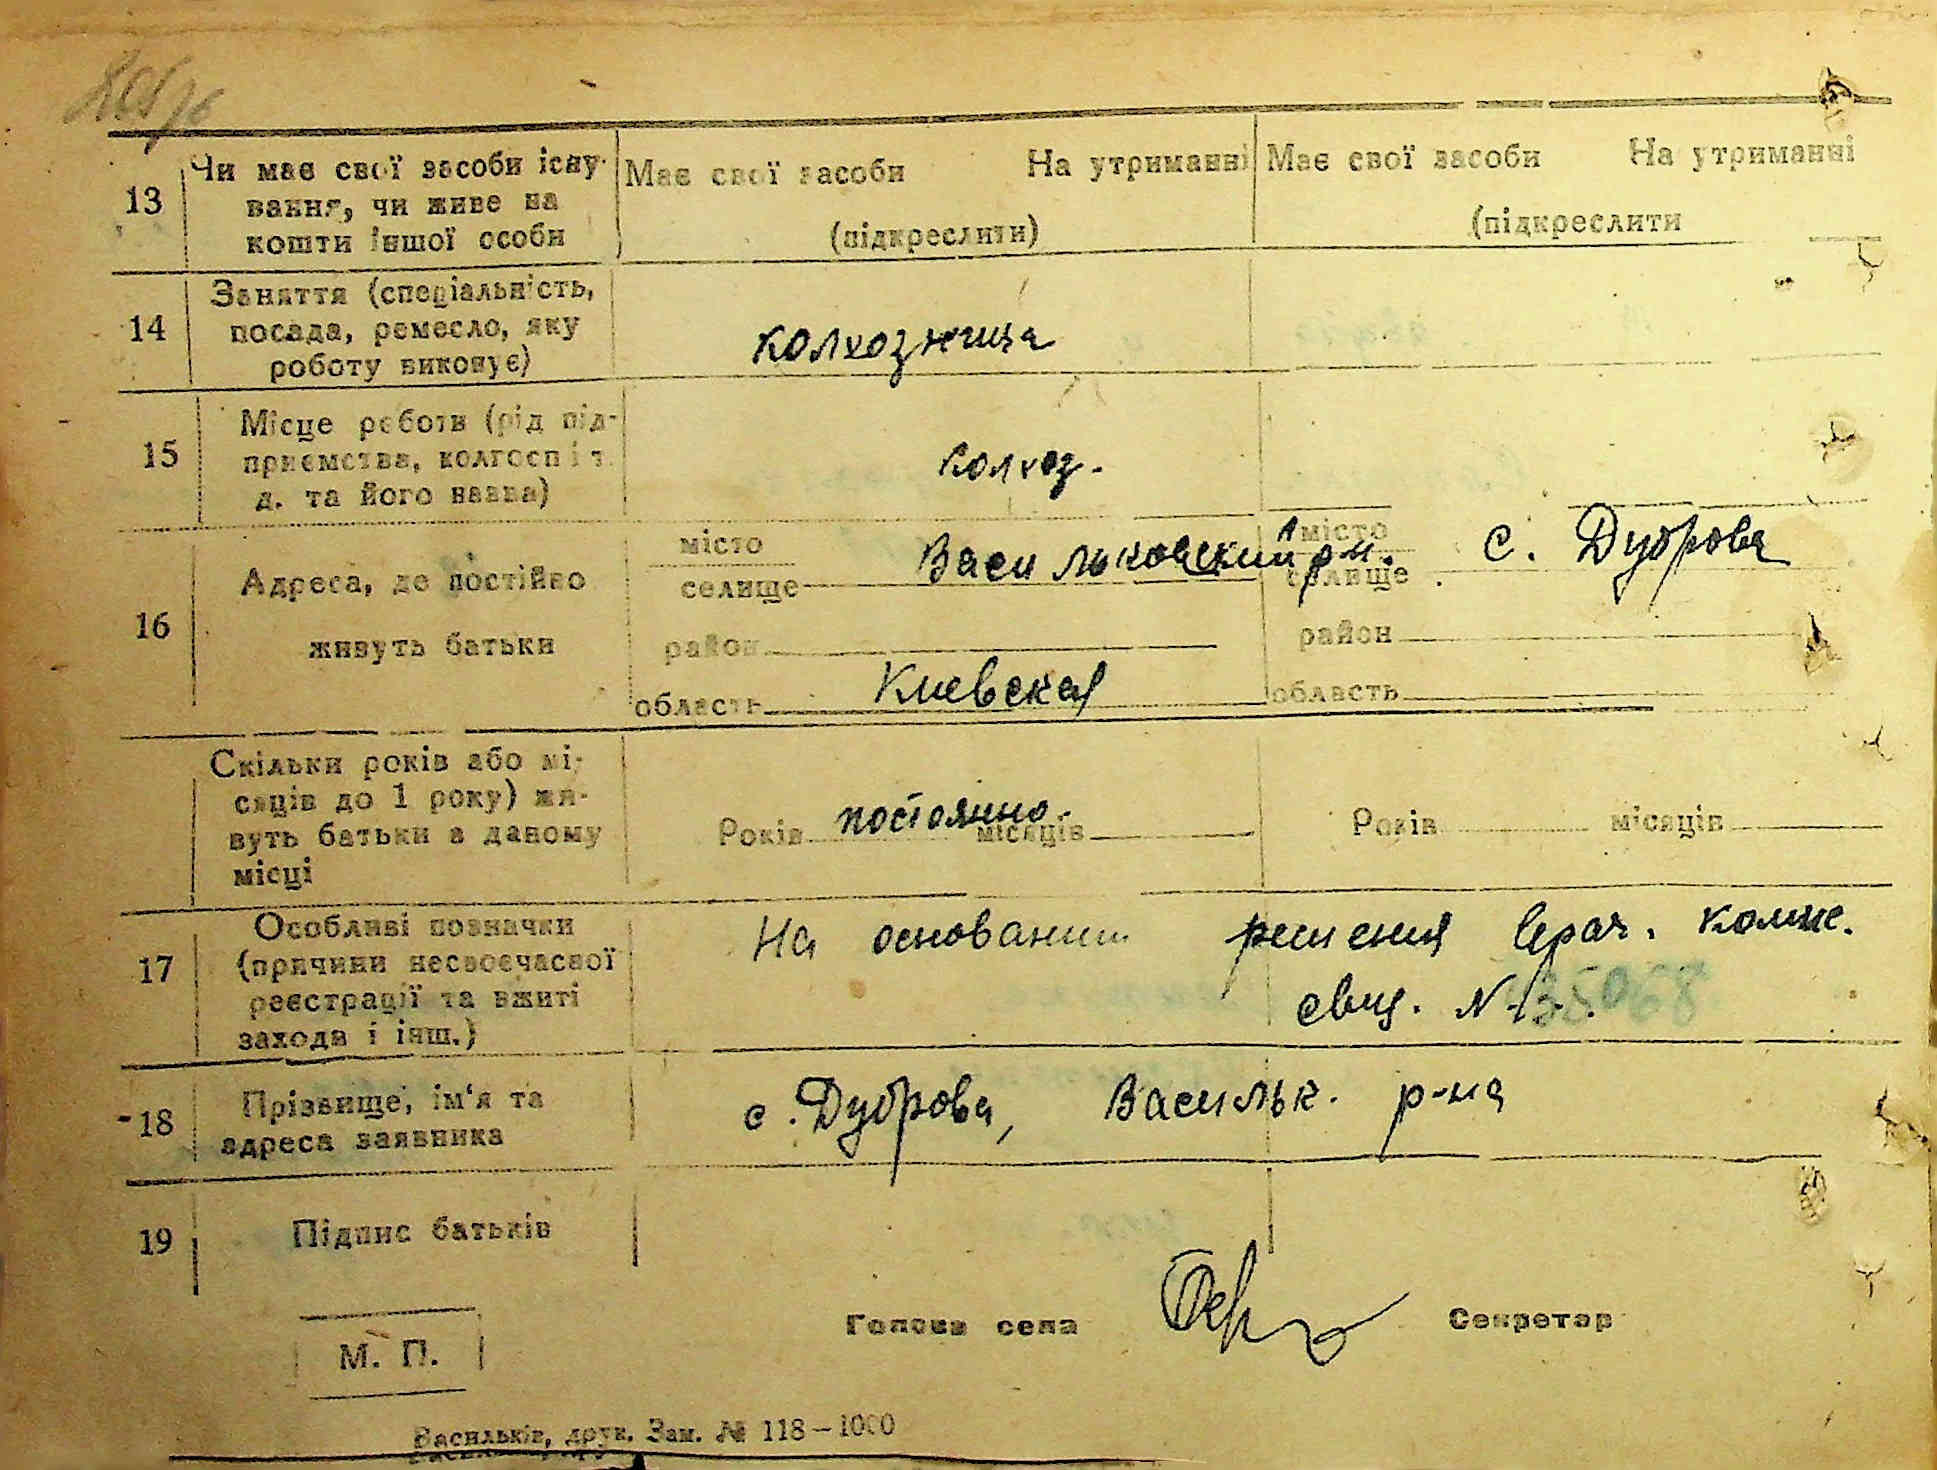 13 Чи має свої засоби існу-
вання, чи живе на
кошти іншої особи
Має свої засоби На утриманні
(підкреслити)
Має свої засоби На утриманні
(підкреслити
14 Заняття (спеціальність,
посада, ремесло, яку
роботу виконує)
колхозница
15 Місце роботи (рід під-
приємства, колгосп і т.
д. та його назва)
колхоз.
16 Адреса, де постійно
живуть батьки
місто
селище
Васильковский р-н.
район
область Киевская
місто
селище
с. Дуброва
район
область
Скільки років або мі-
сяців до 1 року) жи-
вуть батьки в даному
місці
Років постоянно. місяців
Років місяців
17 Особливі позначки
(причини несвоєчасної
реєстрації та вжиті
заходи і інш.)
На основании решения врач. комис.
свид. №
18 Прізвище, ім'я та
адреса заявника
с. Дуброва, Васильк. р-на
19 Підпис батьків
Голова села Секретар
М. П.
Васильків, друк. Зам. № 118–1000